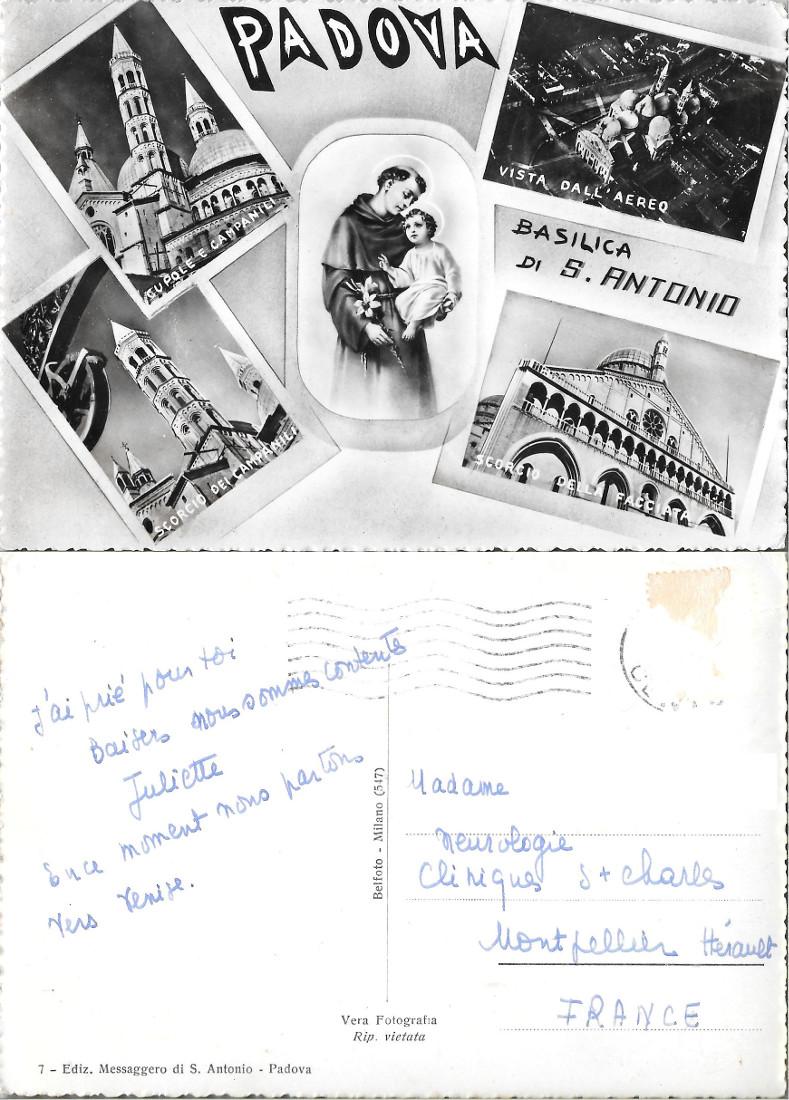 PADOVA
CUPOLE E CAMPANILI
VISTA DALL'AEREO
BASILICA
DI S. ANTONIO
SCORCIO DEI CAMPANILI
SCORCIO DELLA FACCIATA
J'ai prié pour toi
Baisers nous sommes contents
Juliette
En ce moment nous partons
vers Venise.
Belfoto - Milano (547)
Madame
Neurologie
Cliniques St Charles
Montpellier Hérault
FRANCE
Vera Fotografia
Rip. vietata
7 - Ediz. Messaggero di S. Antonio - Padova